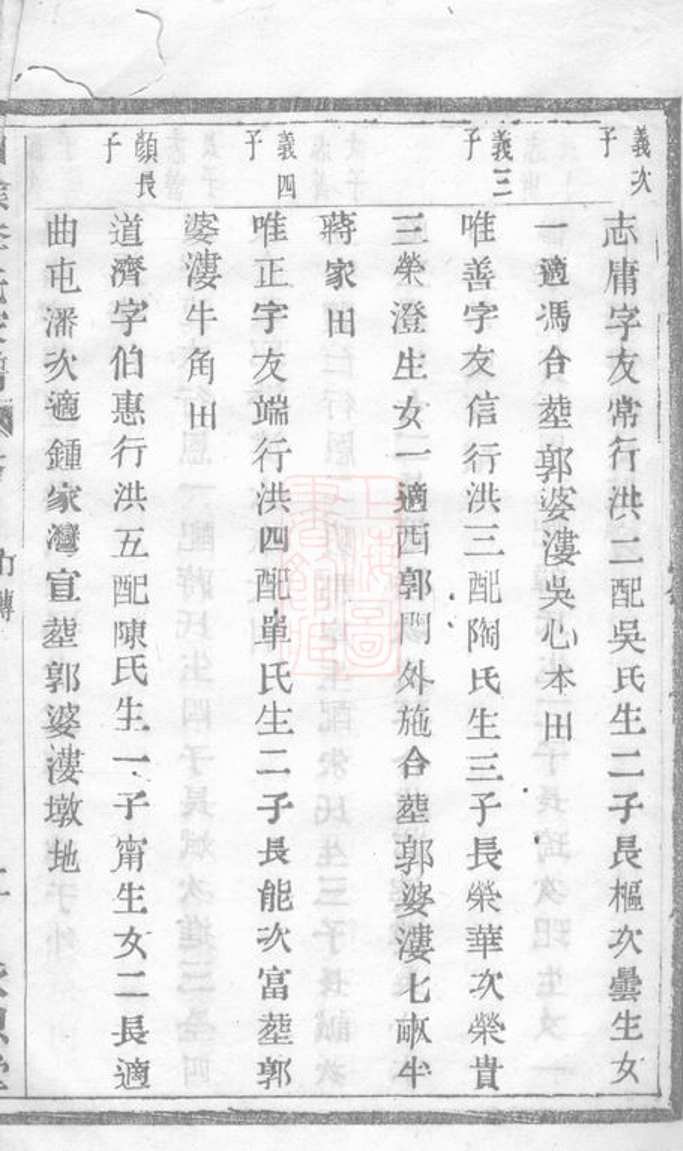 義次子
志庸字友常行洪二配吳氏生二子長樞次曇生女
一適馮合塟郭婆漊吳心本田
義三子
唯善字友信行洪三配陶氏生三子長榮華次榮貴
三榮澄生女一適西郭門外施合塟郭婆漊七畝半
蔣家田
義四子
唯正字友端行洪四配單氏生二子長能次富塟郭
婆漊牛角田
顏長子
道濟字伯惠行洪五配陳氏生一子甯生女二長適
曲屯潘次適鍾家灣宣塟郭婆漊墩地